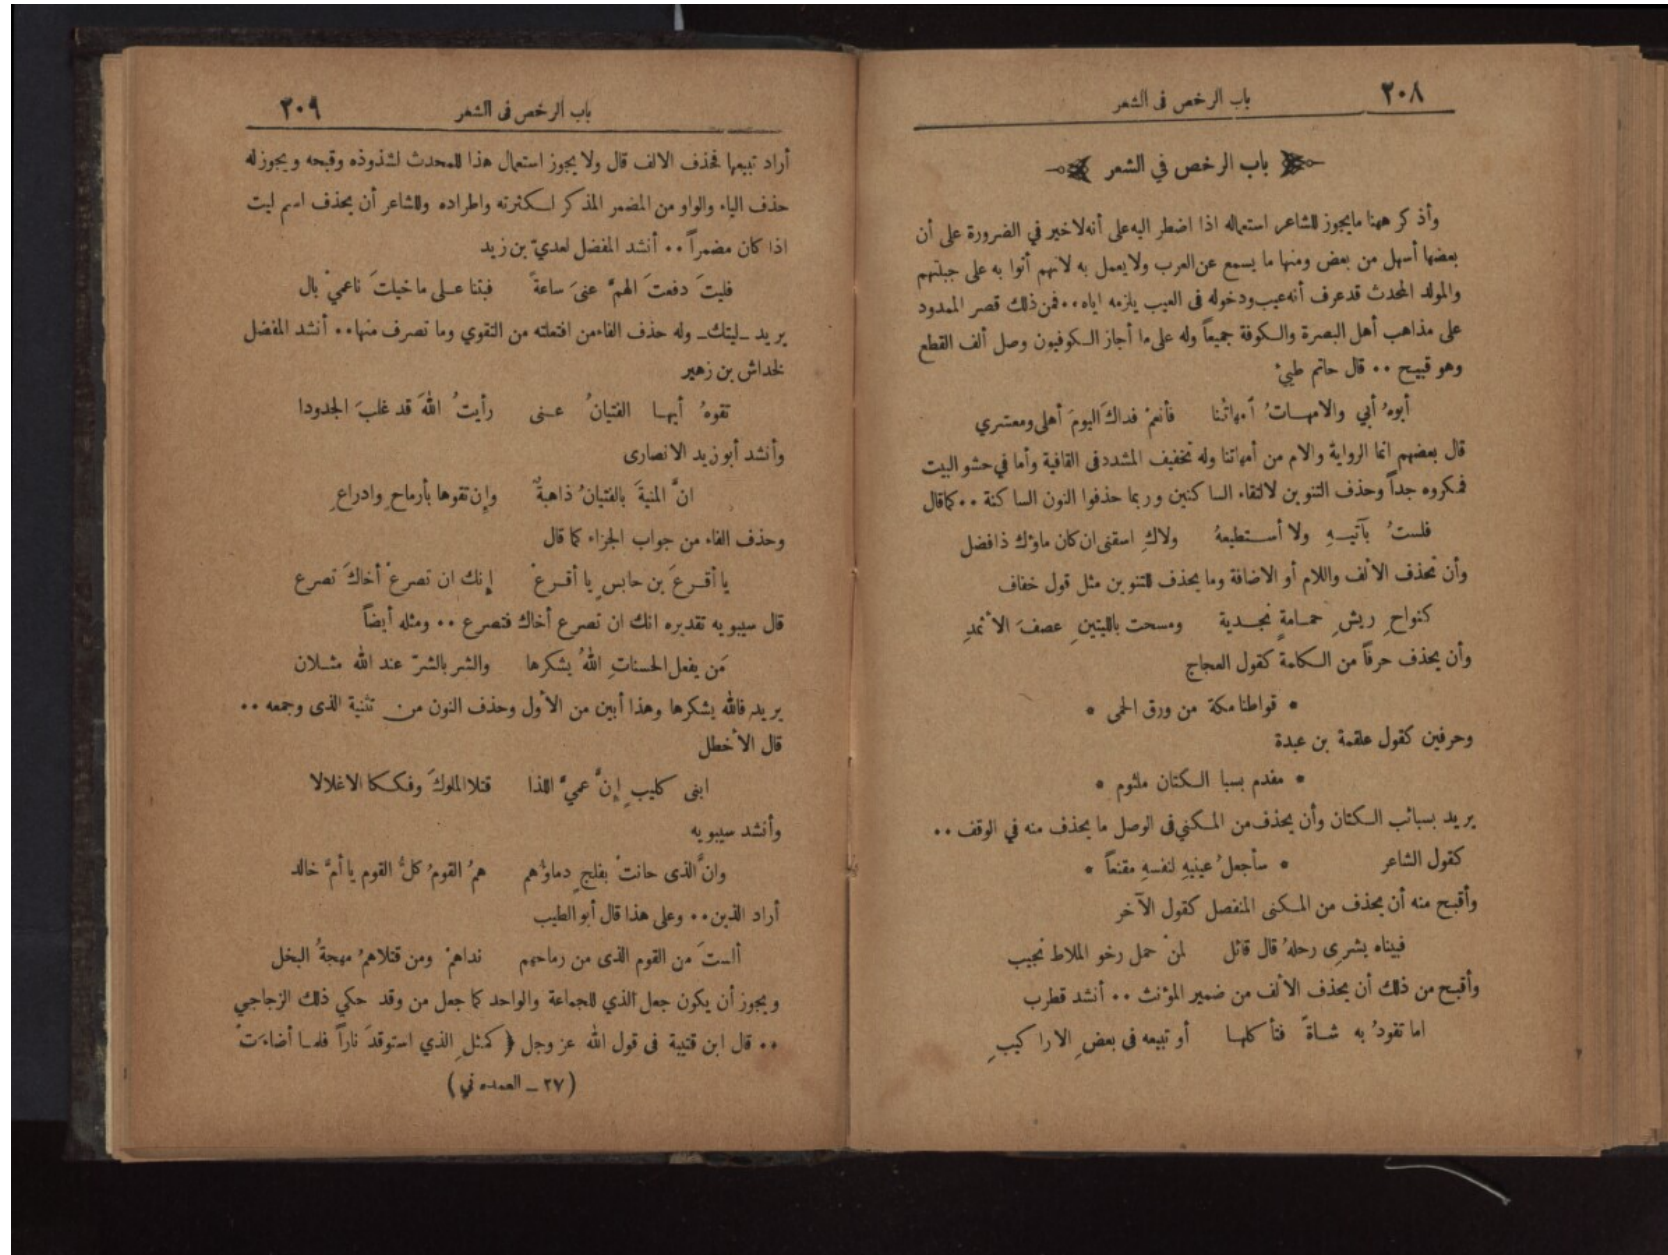 ٢٠٨ باب الرخص فى الشعر
باب الرخص في الشعر
وأذكر ههنا مايجوز للشاعر استعماله اذا اضطر اليه على أنه لاخير في الضرورة على أن
بعضها أسهل من بعض ومنها ما يسمع عن العرب ولا يعمل به لانهم أتوا به على جبلتهم
والمولد المحدث قد عرف أنه عيب ودخوله فى العيب يلزمه اياه ٠٠ فمن ذلك قصر الممدود
على مذاهب أهل البصرة والكوفة جميعاً وله على ما أجاز الكوفيون وصل ألف القطع
وهو قبيح ٠٠ قال حاتم طيئ
أبوهُ أبي والامهاتُ أمهاتُنا فأنعمْ فداكَ اليومَ أهلى ومعشري
قال بعضهم انما الرواية والام من أمهاتنا وله تخفيف المشدد فى القافية وأما في حشو البيت
فمكروه جداً وحذف التنوين لالتقاء الساكنين وربما حذفوا النون الساكنة ٠٠ كما قال
فلستُ بآتيهِ ولا أستطيعهُ ولاكِ اسقنى ان كان ماؤك ذا فضل
وأن تحذف الالف واللام أو الاضافة وما يحذف للتنوين مثل قول خفاف
كنواحِ ريشِ حمامةٍ نجدية ومسحت باللثتينِ عصفَ الأثمدِ
وأن يحذف حرفاً من الكلمة كقول العجاج
* قواطنا مكة من ورق الحمى *
وحرفين كقول علقمة بن عبدة
* مقدم بسبا الكتان ملثوم *
يريد بسبائب الكتان وأن يحذف من المكني فى الوصل ما يحذف منه في الوقف ٠٠
كقول الشاعر * سأجعلُ عينيهِ لنفسهِ مقنعاً *
وأقبح منه أن يحذف من المكنى المنفصل كقول الآخر
فبيناه يشرِى رحلهُ قال قائل لمنْ حمل رخو الملاط نجيب
وأقبح من ذلك أن يحذف الألف من ضمير المؤنث ٠٠ أنشد قطرب
اما تقودُ به شاةً فتأكلها أو تبيعه فى بعضِ الاراكيبِ
باب الرخص فى الشعر ٢٠٩
أراد تبيعها فحذف الالف قال ولا يجوز استعمال هذا للمحدث لشذوذه وقبحه ويجوز له
حذف الياء والواو من المضمر المذكر لكثرته واطراده وللشاعر أن يحذف اسم ليت
اذا كان مضمراً ٠٠ أنشد المفضل لعديّ بن زيد
فليتَ دفعتَ الهمَّ عنىَ ساعةً فبتنا على ما خيلتَ ناعميْ بال
يريد ــ ليتك ــ وله حذف الفاء من افتعلته من التقوي وما تصرف منها ٠٠ أنشد المفضل
لخداش بن زهير
تقوهُ أيها الفتيانُ عنى رأيتُ اللهَ قد غلبَ الجدودا
وأنشد أبو زيد الانصارى
انَّ المنيةَ بالفتيانُ ذاهبةٌ وإن تقوها بأرماحٍ وادراعِ
وحذف الفاء من جواب الجزاء كما قال
يا أقرعَ بن حابسٍ يا أقرعْ إنك ان تصرعْ أخاكَ تصرع
قال سيبويه تقديره انك ان تصرع أخاك فتصرع ٠٠ ومثله أيضاً
مَن يفعل الحسناتِ اللهُ يشكرها والشر بالشرّ عند الله مثلان
يريد فالله يشكرها وهذا أبين من الأول وحذف النون من تثنية الذى وجمعه ٠٠
قال الأخطل
ابنى كليبٍ إنَّ عميَّ اللذا قتلا الملوكَ وفككا الاغلالا
وأنشد سيبويه
وانَّ الذى حانتْ بفلجٍ دماؤهم همُ القومُ كلُّ القوم يا أمَّ خالد
أراد الذين ٠٠ وعلى هذا قال أبو الطيب
ألستَ من القوم الذى من رماحهم نداهمْ ومن قتلاهمُ مهجةُ البخل
ويجوز أن يكون جعل الذي للجماعة والواحد كما جعل من وقد حكي ذلك الزجاجي
٠٠ قال ابن قتيبة فى قول الله عز وجل ﴿ كمثلِ الذي استوقدَ ناراً فلما أضاءتْ
(٢٧ ــ العمده ني)